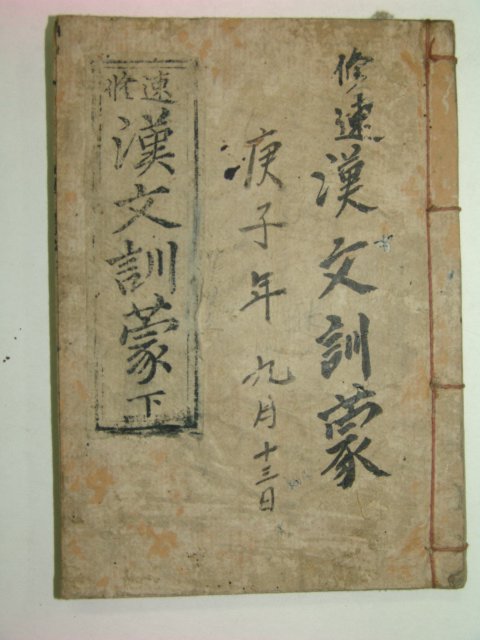 修速漢文訓蒙
庚子年 九月十三日
速修
漢文訓蒙下